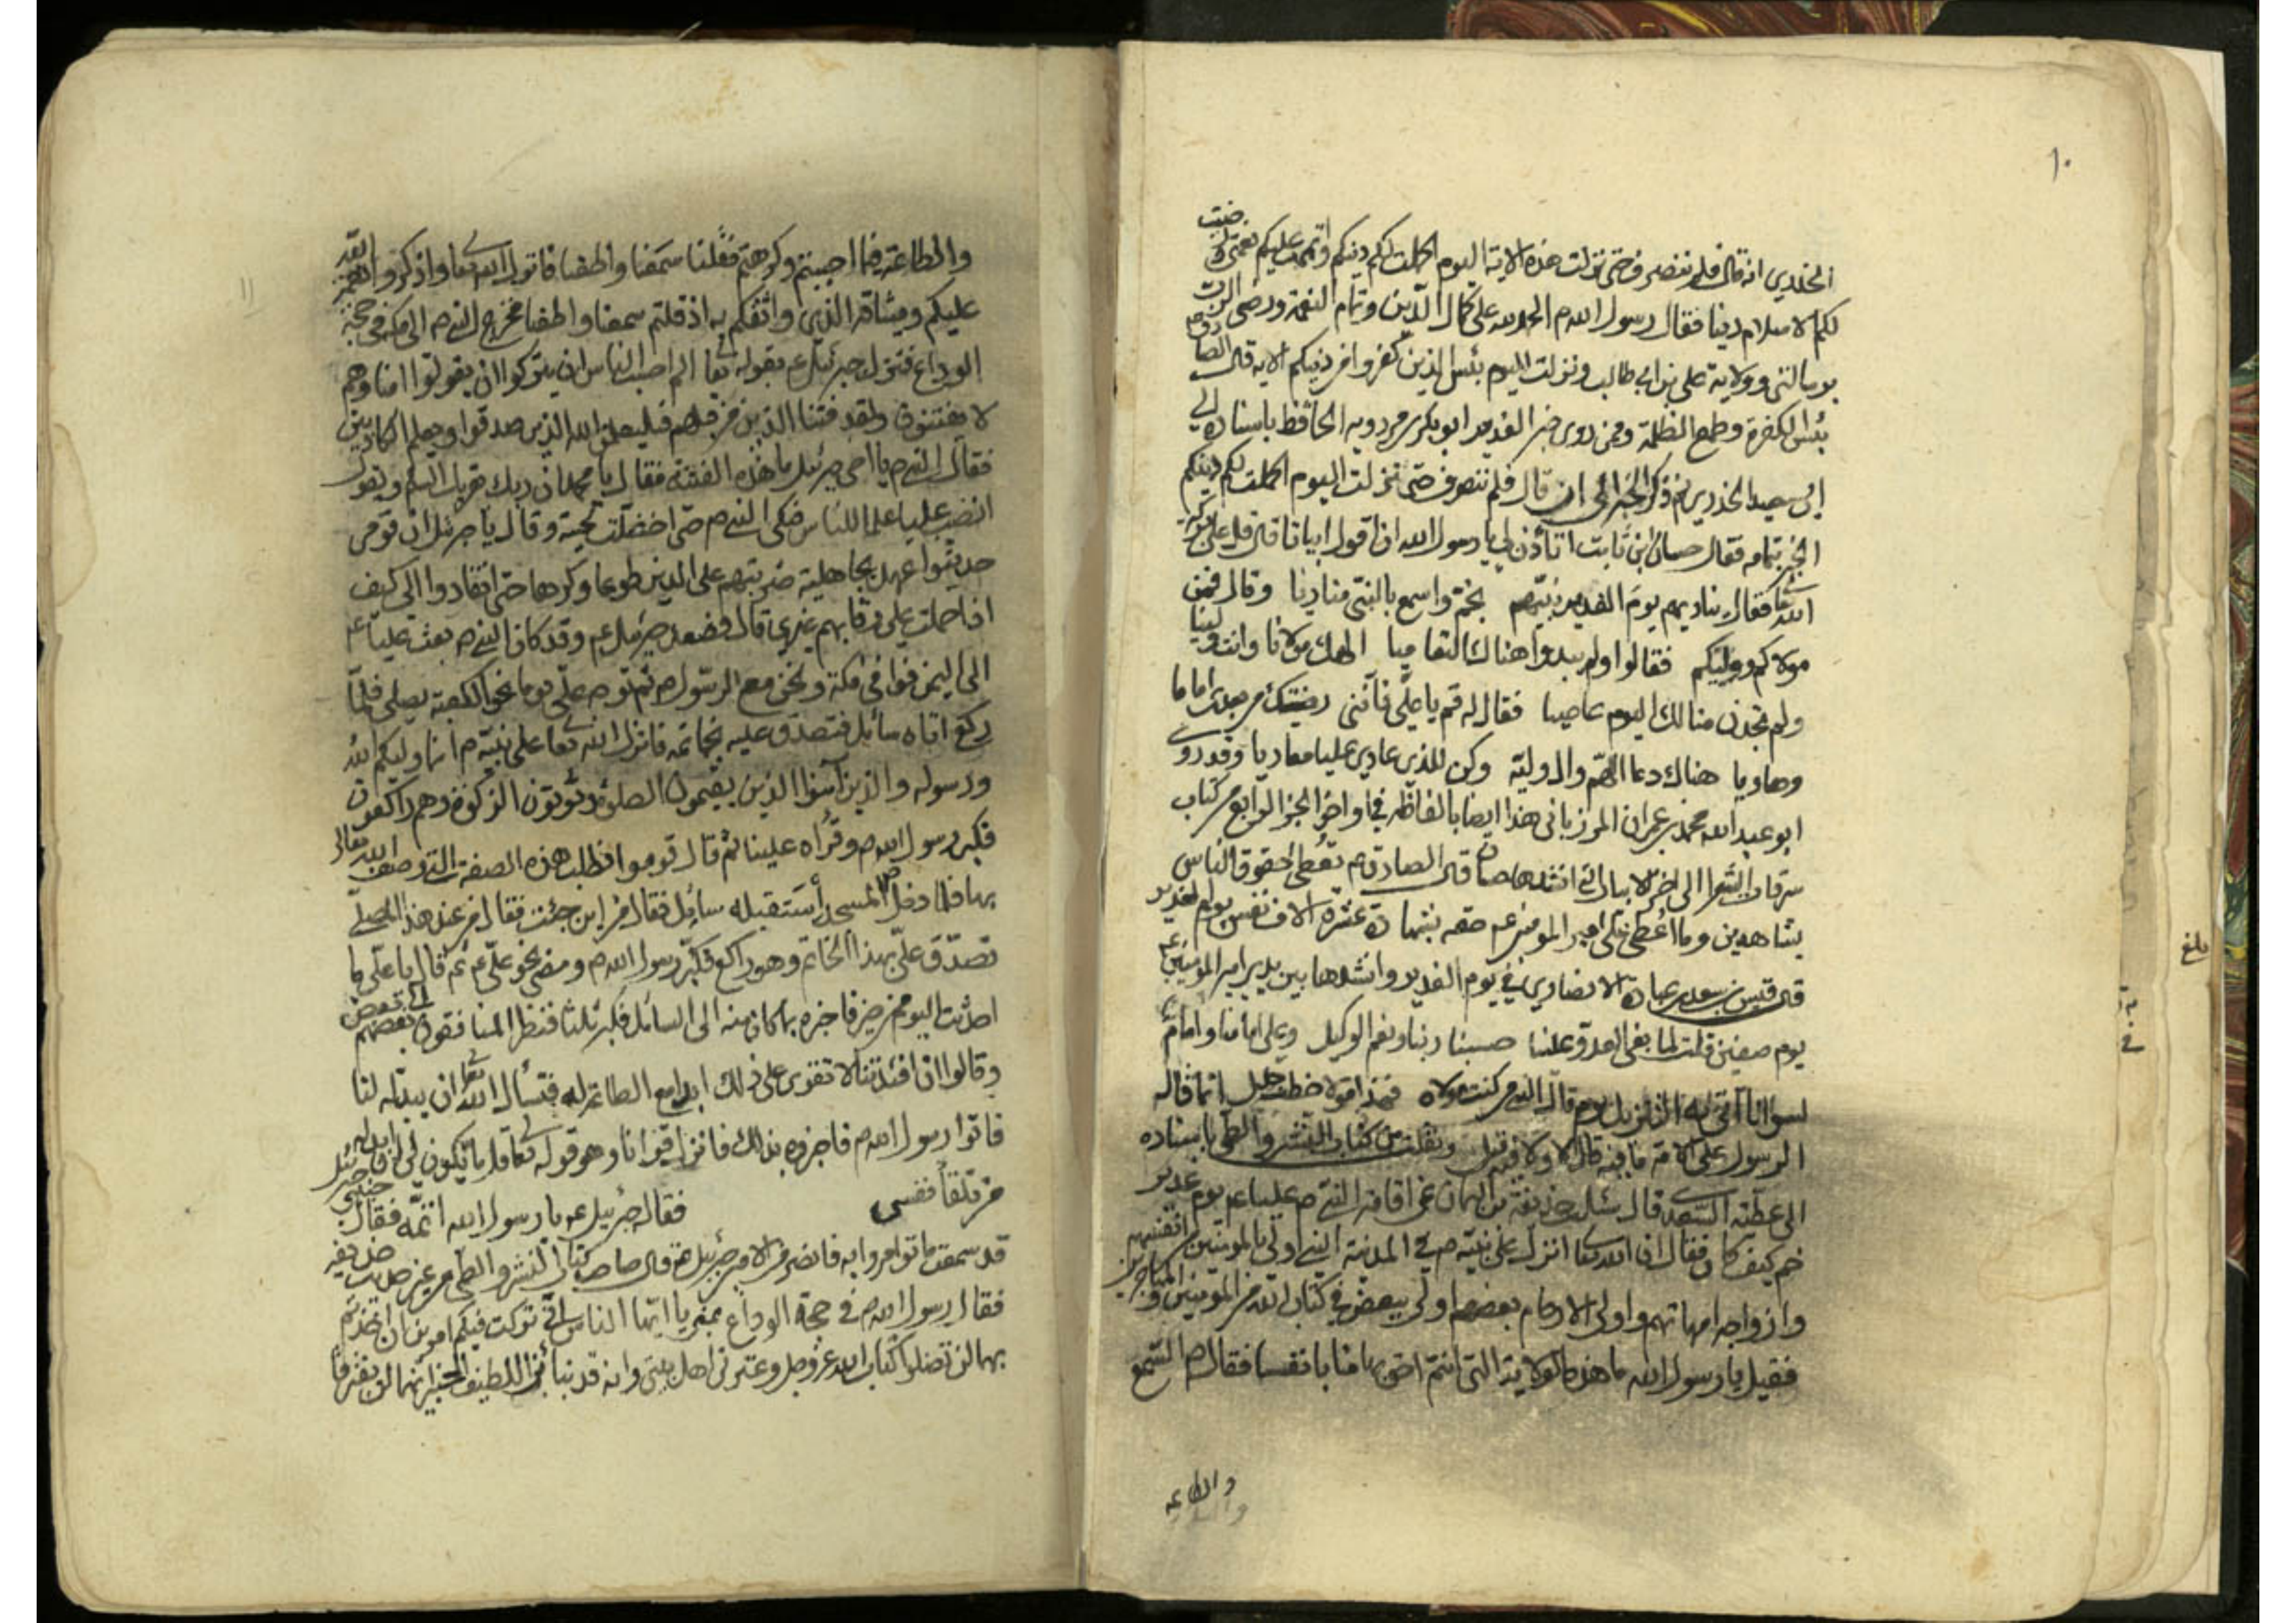 ١٠
الخدري انه قال فلم ننصرف حتى نزلت هذه الاية اليوم اكملت لكم دينكم واتممت عليكم نعمتى ورضيت
لكم الاسلام دينا فقال رسول الله ص الحمد لله على كمال الدين وتمام النعمة ورضى الرب
برسالتى وولاية على بن ابى طالب ونزلت اليوم يئس الذين كفروا من دينكم الاية قال الصادق ع
يئس الكفرة وطمع الظلمة وممن روى خبر الغدير ابو بكر بن مردويه الحافظ باسناده الى
ابى سعيد الخدرى ثم ذكر الخبر الى ان قال فلم ننصرف حتى نزلت اليوم اكملت لكم دينكم
الخبر بتمامه فقال حسان بن ثابت اتأذن لي يا رسول الله ان اقول ابياتا قال قل على بركة
الله تعا فقال يناديهم يوم الغدير نبيّهم بخم واسمع بالنبى مناديا وقال فمن
مولاكم ووليكم فقالوا ولم يبدوا هناك التعاميا الهك مولانا وانت ولينا
ولم تجدن منا لك اليوم عاصيا فقال له قم يا على فانّنى رضيتك من بعدى اماما
وهاديا هناك دعا اللهم وال وليه وكن للذى عادى عليا معاديا وقد روى
ابو عبد الله محمد بن عمران المرزبانى هذا ايضا بالفاظه فى اواخر الجزء الرابع من كتاب
سرقات الشعر الى اخر الابيات التى انشدها حسان قال الصادق ع تعطى حقوق الناس
بشاهدين وما اعطى امير المؤمنين ع حقه بشهادة عشرة الاف نفس يوم الغدير
قال قيس بن سعد بن عبادة الانصارى فى يوم الغدير وانشدها بين يدى امير المؤمنين ع
يوم صفين قلت لما بغى العدو علينا حسبنا ربنا ونعم الوكيل وعلى امامنا وامام
لسوانا اتى به التنزيل يوم قال النبى من كنت مولاه فهذا مولاه خطب جليل انما قاله
الرسول على الامة ما فيه قال ولا فيه قيل ونقلت من كتاب النشر والطى باسناده
الى عطية السعدى قال سئلت حذيفة بن اليمان عن اقامة النبى ص عليا ع يوم غدير
خم كيف كان فقال ان الله تعا انزل على نبيّه ص فى المدينة النبى اولى بالمؤمنين من انفسهم
وازواجه امهاتهم واولى الارحام بعضهم اولى ببعض فى كتاب الله من المؤمنين والمهاجرين
فقيل يا رسول الله ما هذه الولاية التى انتم احق بها منا بانفسنا فقال ص السمع
والطاعه
بلغ
١١
والطاعة فيما احببتم وكرهتم فقلنا سمعنا واطعنا فانزل الله تعا واذكروا نعمة الله
عليكم وميثاقه الذي واثقكم به اذ قلتم سمعنا واطعنا فخرج النبى ص الى مكة فى حجة
الوداع فنزل جبرئيل ع بقوله تعا الم احسب الناس ان يتركوا ان يقولوا امنا وهم
لا يفتنون ولقد فتنا الذين من قبلهم فليعلمن الله الذين صدقوا وليعلم الكاذبين
فقال النبى ص يا اخى جبرئيل ما هذه الفتنة فقال يا محمد ان ربك يقريك السلم ويقول
انصب عليا علما للناس فبكى النبى ص حتى اخضلت لحيته وقال يا جبرئيل ان قومى
حديثوا عهد بجاهلية ضربتهم على الدين طوعا وكرها حتى انقادوا الى كيف
اذا حملت على رقابهم غيرى قال فصعد جبرئيل ع وقد كان النبى ص بعث عليا ع
الى اليمن فوافى مكة ونحن مع الرسول ص ثم توجه على يوما نحو الكعبة يصلى فلما
ركع اتاه سائل فتصدق عليه بخاتمه فانزل الله تعا على نبيّه ص انما وليكم الله
ورسوله والذين آمنوا الذين يقيمون الصلوة ويؤتون الزكوة وهم راكعون
فكبر رسول الله ص وقراه علينا ثم قال قوموا نطلب هذه الصفة التى وصف الله تعالى
بها فلما دخل ص المسجد استقبله سائل فقال من اين جئت فقال من عند هذا المصلّى
تصدّق علىّ بهذا الخاتم وهو راكع فكبّر رسول الله ص ومضى نحو علىّ ع ثم قال يا علىّ ما
احدثت اليوم من خير فاخبره بما كان منه الى السائل فكبر ثلثا فنظر المنافقون بعضهم الى بعض
وقالوا ان افئدتنا لا تقوى على ذلك ابدا مع الطاعة له فنسأل الله تعا ان يبدّله لنا
فاتوا رسول الله ص فاخبروه بذلك فانزل قرانا وهو قوله تعا قل ما يكون لى ان ابدله
من تلقاء نفسى فقال جبرئيل ع يا رسول الله اتمّه فقال حبيبى جبرئيل
قد سمعت ما توامروا به فانصرف الامين جبرئيل ع قال صاحب كتاب النشر والطى من غير حديث حذيفة
فقال رسول الله ص فى حجة الوداع بمنى يا ايها الناس انّى تركت فيكم امرين ان اخذتم
بهما لن تضلوا كتاب الله عزوجل وعترتى اهل بيتى وانه قد نبأنى اللطيف الخبير انهما لن يفترقا